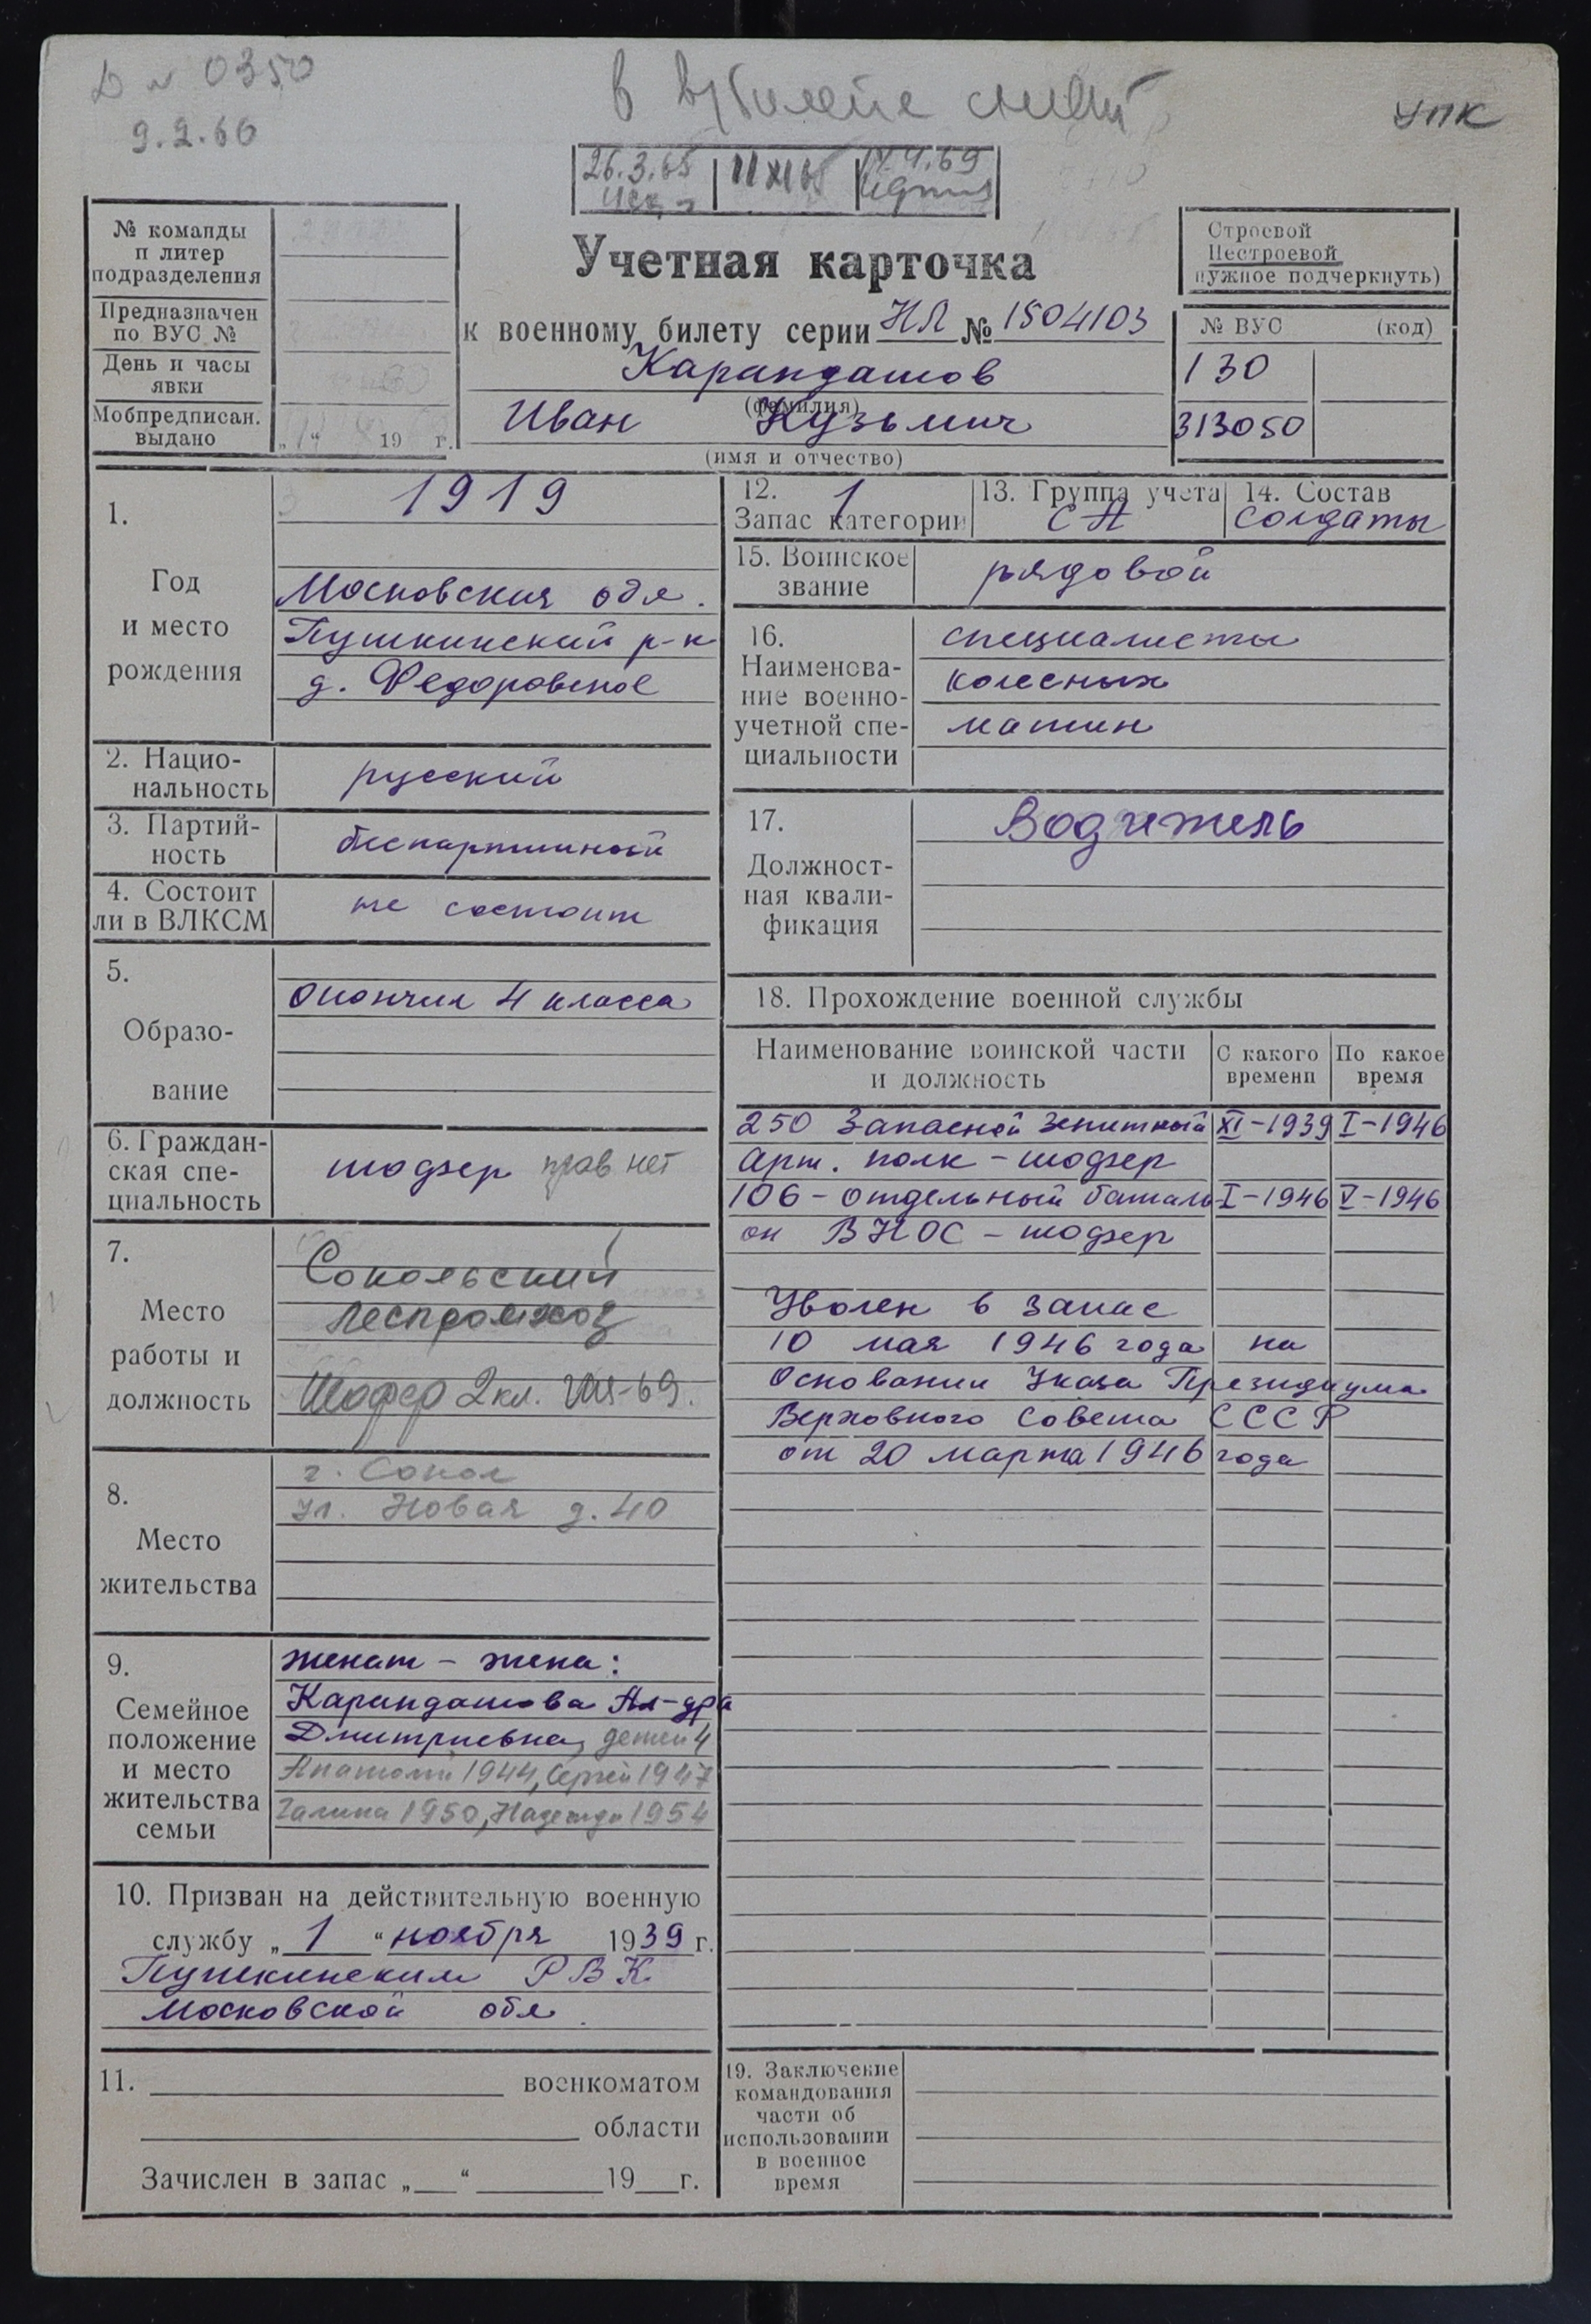 0350
9.2.66
в
УПК
26.3.65
11 XI 65
№ команды
и литер
подразделения
Предназначен
по ВУС №
День и часы
явки
Мобпредписан.
выдано
„ “ 19 г.
Учетная карточка
к военному билету серии НЛ № 1504103
Карандашов
(фамилия)
Иван Кузьмич
(имя и отчество)
Строевой
Нестроевой
нужное подчеркнуть)
№ ВУС (код)
130
313050
1.
Год
и место
рождения
1919
Московская обл.
Пушкинский р-н
д. Федоровское
2. Нацио-
нальность
русский
3. Партий-
ность
беспартийный
4. Состоит
ли в ВЛКСМ
не состоит
5.
Образо-
вание
Окончил 4 класса
6. Граждан-
ская спе-
циальность
шофер прав нет
7.
Место
работы и
должность
Сокольский
леспромхоз
Шофер 2 кл. VIII-69.
8.
Место
жительства
г. Сокол
ул. Новая д. 40
9.
Семейное
положение
и место
жительства
семьи
женат - жена:
Карандашова Ал-дра
Дмитриевна, детей 4
Анатолий 1944, Сергей 1947
Галина 1950, Надежда 1954
10. Призван на действительную военную
службу „ 1 “ ноября 1939 г.
Пушкинским РВК
Московской обл.
11. военкоматом
области
Зачислен в запас „ “ 19 г.
12. 1
Запас категории
13. Группа учета
СА
14. Состав
солдаты
15. Воинское
звание
рядовой
16.
Наименова-
ние военно-
учетной спе-
циальности
специалисты
колесных
машин
17.
Должност-
ная квали-
фикация
Водитель
18. Прохождение военной службы
Наименование воинской части
и должность
С какого
времени
По какое
время
250 Запасной Зенитный XI-1939 I-1946
Арт. полк - шофер
106 - отдельный баталь I-1946 V-1946
он ВНОС - шофер
Уволен в запас
10 мая 1946 года на
Основании Указа Президиума
Верховного Совета СССР
от 20 марта 1946 года
19. Заключение
командования
части об
использовании
в военное
время